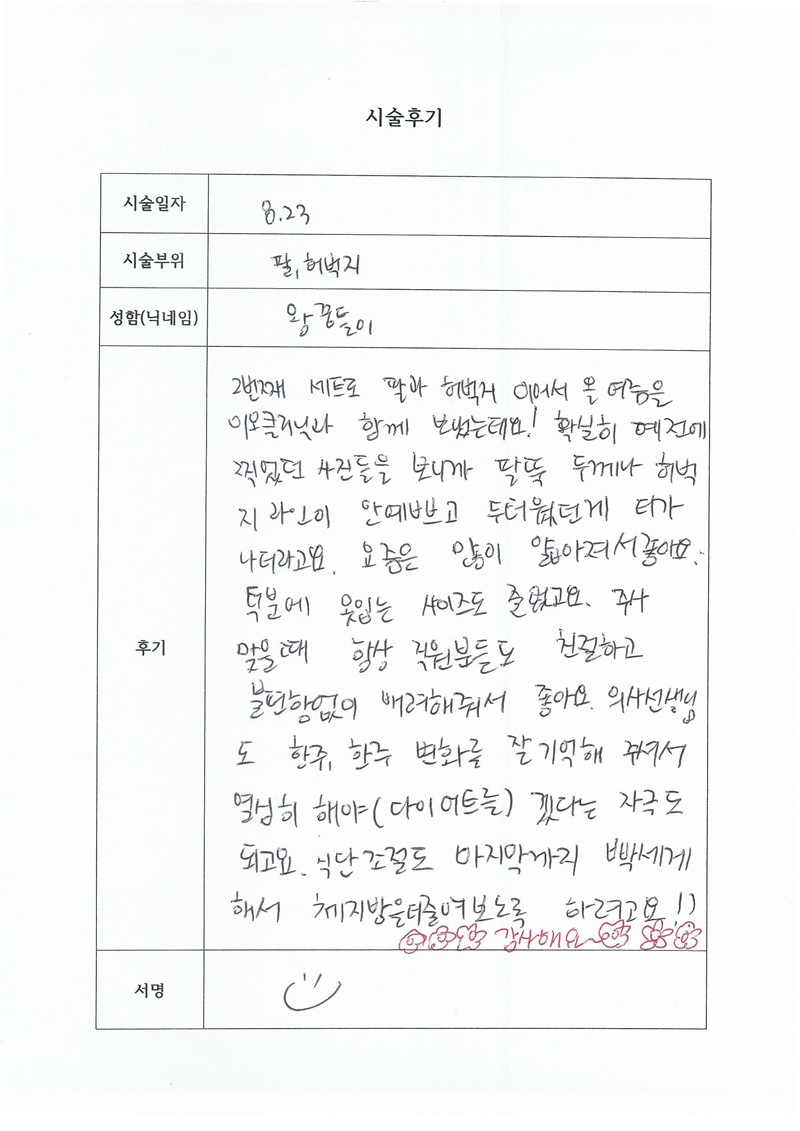 시술후기
시술일자 8.23
시술부위 팔, 허벅지
성함(닉네임) 왕꿈들이
후기
2번째 세트로 팔과 허벅지 이어서 올 여름을
이오클리닉과 함께 보냈는데요! 확실히 예전에
찍었던 사진들을 보니까 팔뚝 두께나 허벅
지 라인이 안예쁘고 두터웠던게 티가
나더라고요. 요즘은 많이 얇아져서좋아요.
덕분에 옷입는 사이즈도 줄었고요. 주사
맞을때 항상 직원분들도 친절하고
불편함없이 배려해줘서 좋아요. 의사선생님
도 한주, 한주 변화를 잘 기억해 주셔서
열심히 해야(다이어트를) 겠다는 자극도
되고요. 식단조절도 마지막까지 빡세게
해서 체지방을더줄여보도록 하려고요!)
감사해요~
서명